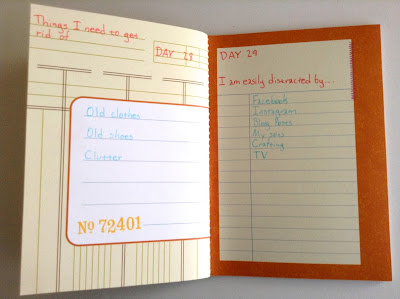 Things I need to get
rid of
DAY 28
Old clothes
Old shoes
Clutter
No 72401
DAY 29
I am easily distracted by...
Facebook
Instagram
Blog Posts
My pets
Crafting
TV